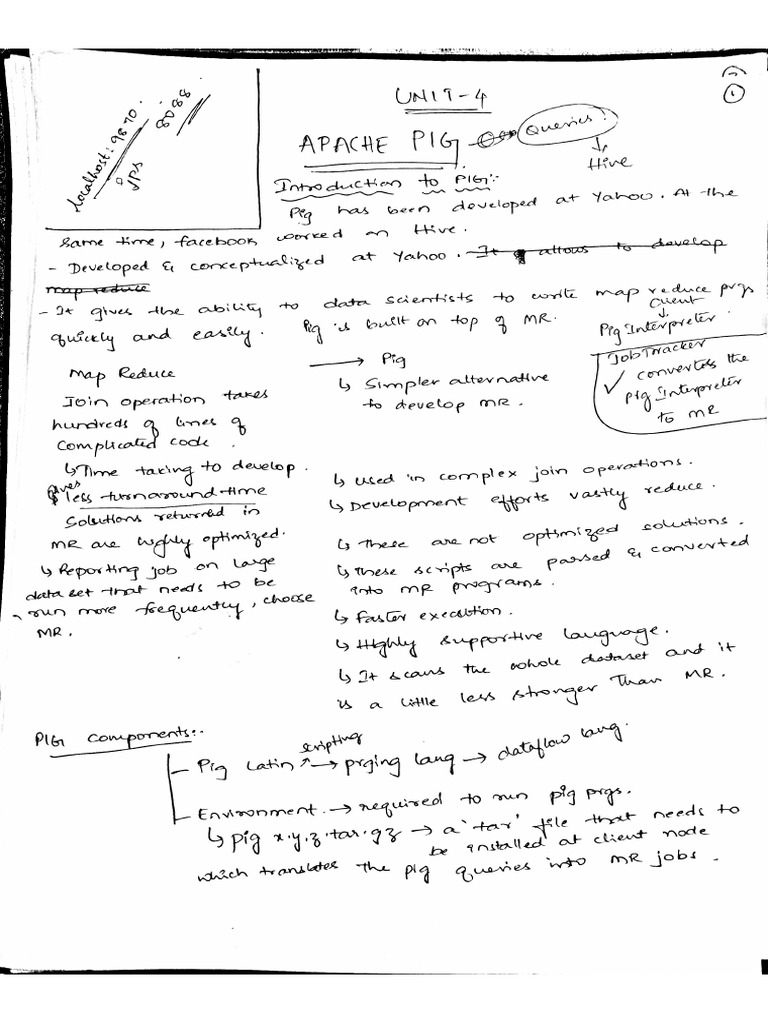 localhost:9870.
8088
jps
UNIT-4
1
APACHE PIG
Queries!
Hive
Introduction to PIG:-
Pig has been developed at Yahoo. At the
same time, facebook worked on Hive.
- Developed & conceptualized at Yahoo. It allows to develop
map reduce
- It gives the ability to data scientists to write map reduce prgs
quickly and easily. Pig is built on top of MR.
client
Pig Interpreter.
JobTracker
converts the
pig Interpreter
to MR
Map Reduce
Join operation takes
hundreds of lines of
complicated code.
↳ Time taking to develop.
gives
less turnaround time
Solutions returned in
MR are highly optimized.
↳ Reporting job on large
data set that needs to be
run more frequently, choose
MR.
→ Pig
↳ Simpler alternative
to develop MR.
↳ used in complex join operations.
↳ Development efforts vastly reduce.
↳ These are not optimized solutions.
↳ These scripts are parsed & converted
into MR programs.
↳ Faster execution.
↳ Highly supportive language.
↳ It scans the whole dataset and it
is a little less stronger than MR.
PIG components:-
scripting
Pig Latin → prging lang → dataflow lang.
Environment → required to run pig prgs.
↳ pig x.y.z.tar.gz → a 'tar' file that needs to
be installed at client node
which translates the pig queries into MR jobs.